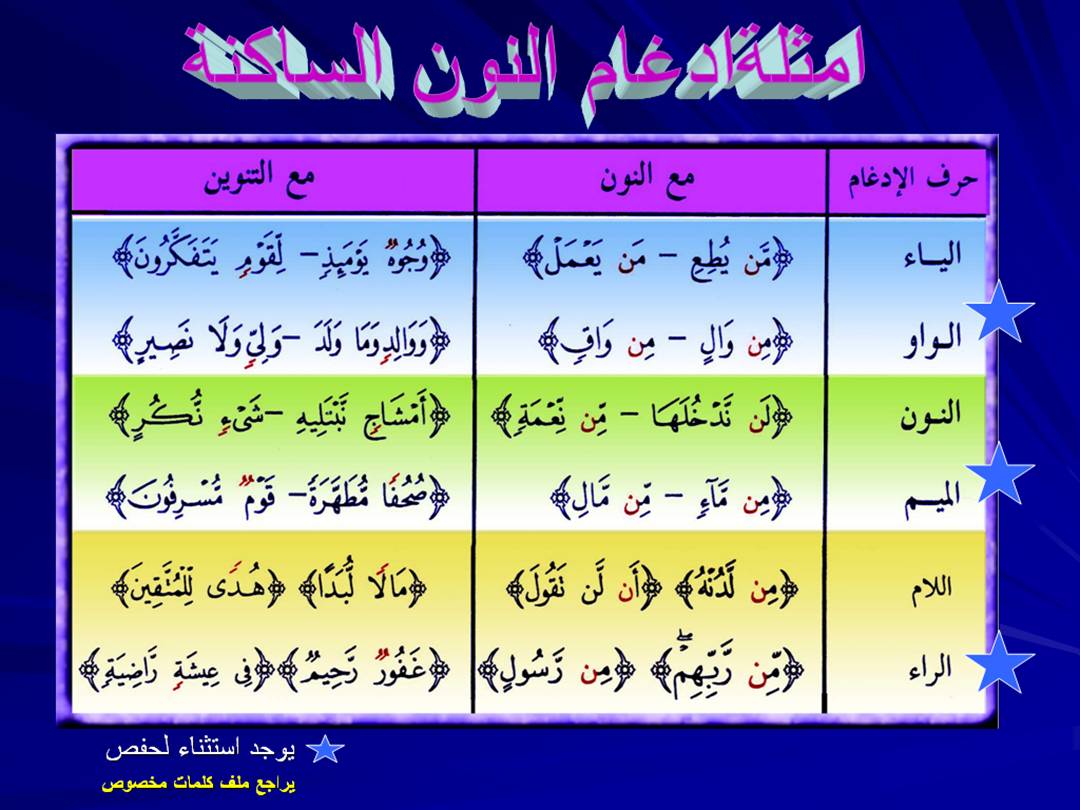 امثلة ادغام النون الساكنة
حرف الإدغام مع النون مع التنوين
اليـــاء ﴿مَّن يُطِعِ – مَن يَعْمَلْ﴾ ﴿وُجُوهٌ يَوْمَئِذٍ – لِّقَوْمٍ يَتَفَكَّرُونَ﴾
الـواو ﴿مِن وَالٍ – مِن وَاقٍ﴾ ﴿وَوَالِدٍ وَمَا وَلَدَ – وَلِيٍّ وَلَا نَصِيرٍ﴾
النـون ﴿لَن نَّدْخُلَهَا – مِّن نِّعْمَةٍ﴾ ﴿أَمْشَاجٍ نَّبْتَلِيهِ – شَىْءٍ نُّكُرٍ﴾
الميـــم ﴿مِن مَّآءٍ – مِّن مَّالٍ﴾ ﴿صُحُفًا مُّطَهَّرَةً – قَوْمٌ مُّسْرِفُونَ﴾
اللام ﴿مِن لَّدُنْهُ﴾ ﴿أَن لَّن تَقُولَ﴾ ﴿مَالًا لُّبَدًا﴾ ﴿هُدًى لِّلْمُتَّقِينَ﴾
الراء ﴿مِّن رَّبِّهِمْۖ﴾ ﴿مِن رَّسُولٍ﴾ ﴿غَفُورٌ رَّحِيمٌ﴾ ﴿فِى عِيشَةٍ رَّاضِيَةٍ﴾
يوجد استثناء لحفص
يراجع ملف كلمات مخصوص